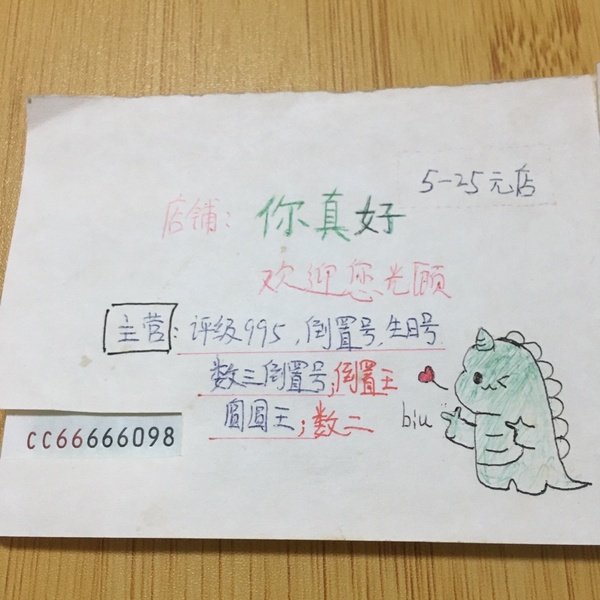 5-25元店
店铺：你真好
欢迎您光顾
主营：评级995，倒置号，生日号
数三倒置号；倒置王
圆圆王；数二
biu
CC66666098